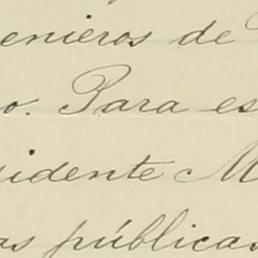 enieros de
o. Para es
sidente M
as públicas